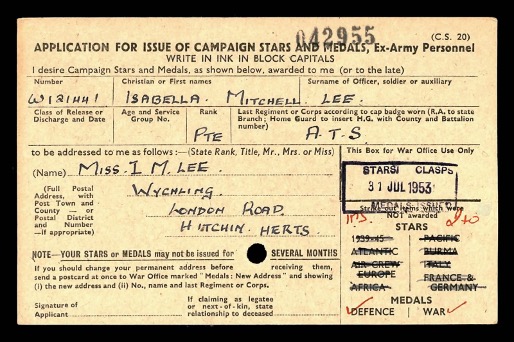 042955
(C.S. 20)
APPLICATION FOR ISSUE OF CAMPAIGN STARS AND MEDALS, Ex-Army Personnel
WRITE IN INK IN BLOCK CAPITALS
I desire Campaign Stars and Medals, as shown below, awarded to me (or to the late)
Number
Christian or First names
Surname of Officer, soldier or auxiliary
W/21441
ISABELLA. MITCHELL. LEE.
Class of Release or Discharge and Date
Age and Service Group No.
Rank
Last Regiment or Corps according to cap badge worn (R.A. to state Branch; Home Guard to insert H.G. with County and Battalion number)
PTE
A.T.S
to be addressed to me as follows:—(State Rank, Title, Mr., Mrs. or Miss)
This Box for War Office Use Only
(Name) MISS. I M. LEE.
(Full Postal Address, with Post Town and County — or Postal District and Number —if appropriate)
WYCHLING.
LONDON ROAD.
HITCHIN. HERTS.
STARS/ CLASPS
31 JUL 1953
MEDALS ISSUED
Strike out items which were NOT awarded
STARS
1939-45
PACIFIC
ATLANTIC
BURMA
AIR CREW EUROPE
ITALY
AFRICA
FRANCE & GERMANY
MEDALS
DEFENCE
WAR
NOTE—YOUR STARS or MEDALS may not be issued for SEVERAL MONTHS
If you should change your permanent address before receiving them,
send a postcard at once to War Office marked "Medals: New Address" and showing
(i) the new address and (ii) No., name and last Regiment or Corps.
Signature of Applicant
If claiming as legatee or next-of-kin, state relationship to deceased